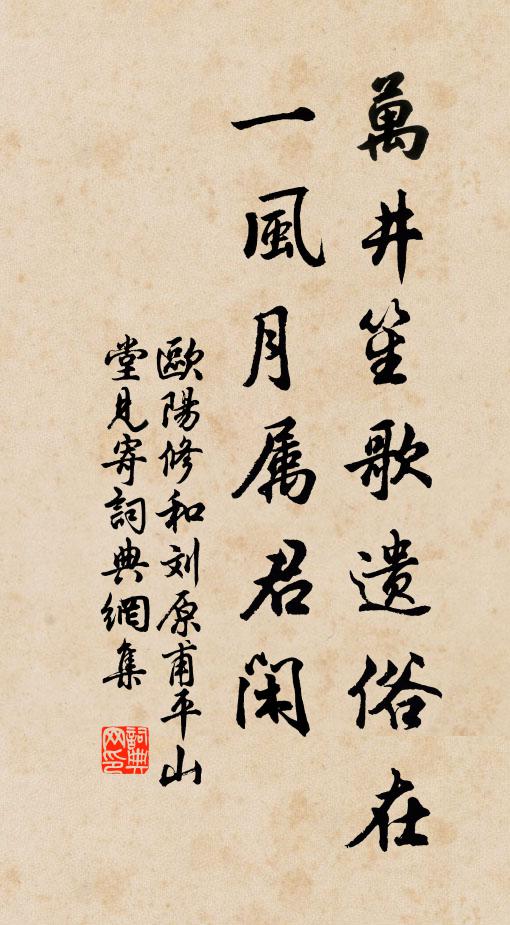 萬井笙歌遺俗在
一風月属君閑
歐陽修和刘原甫平山
堂見寄詞典網集
詞典
网印